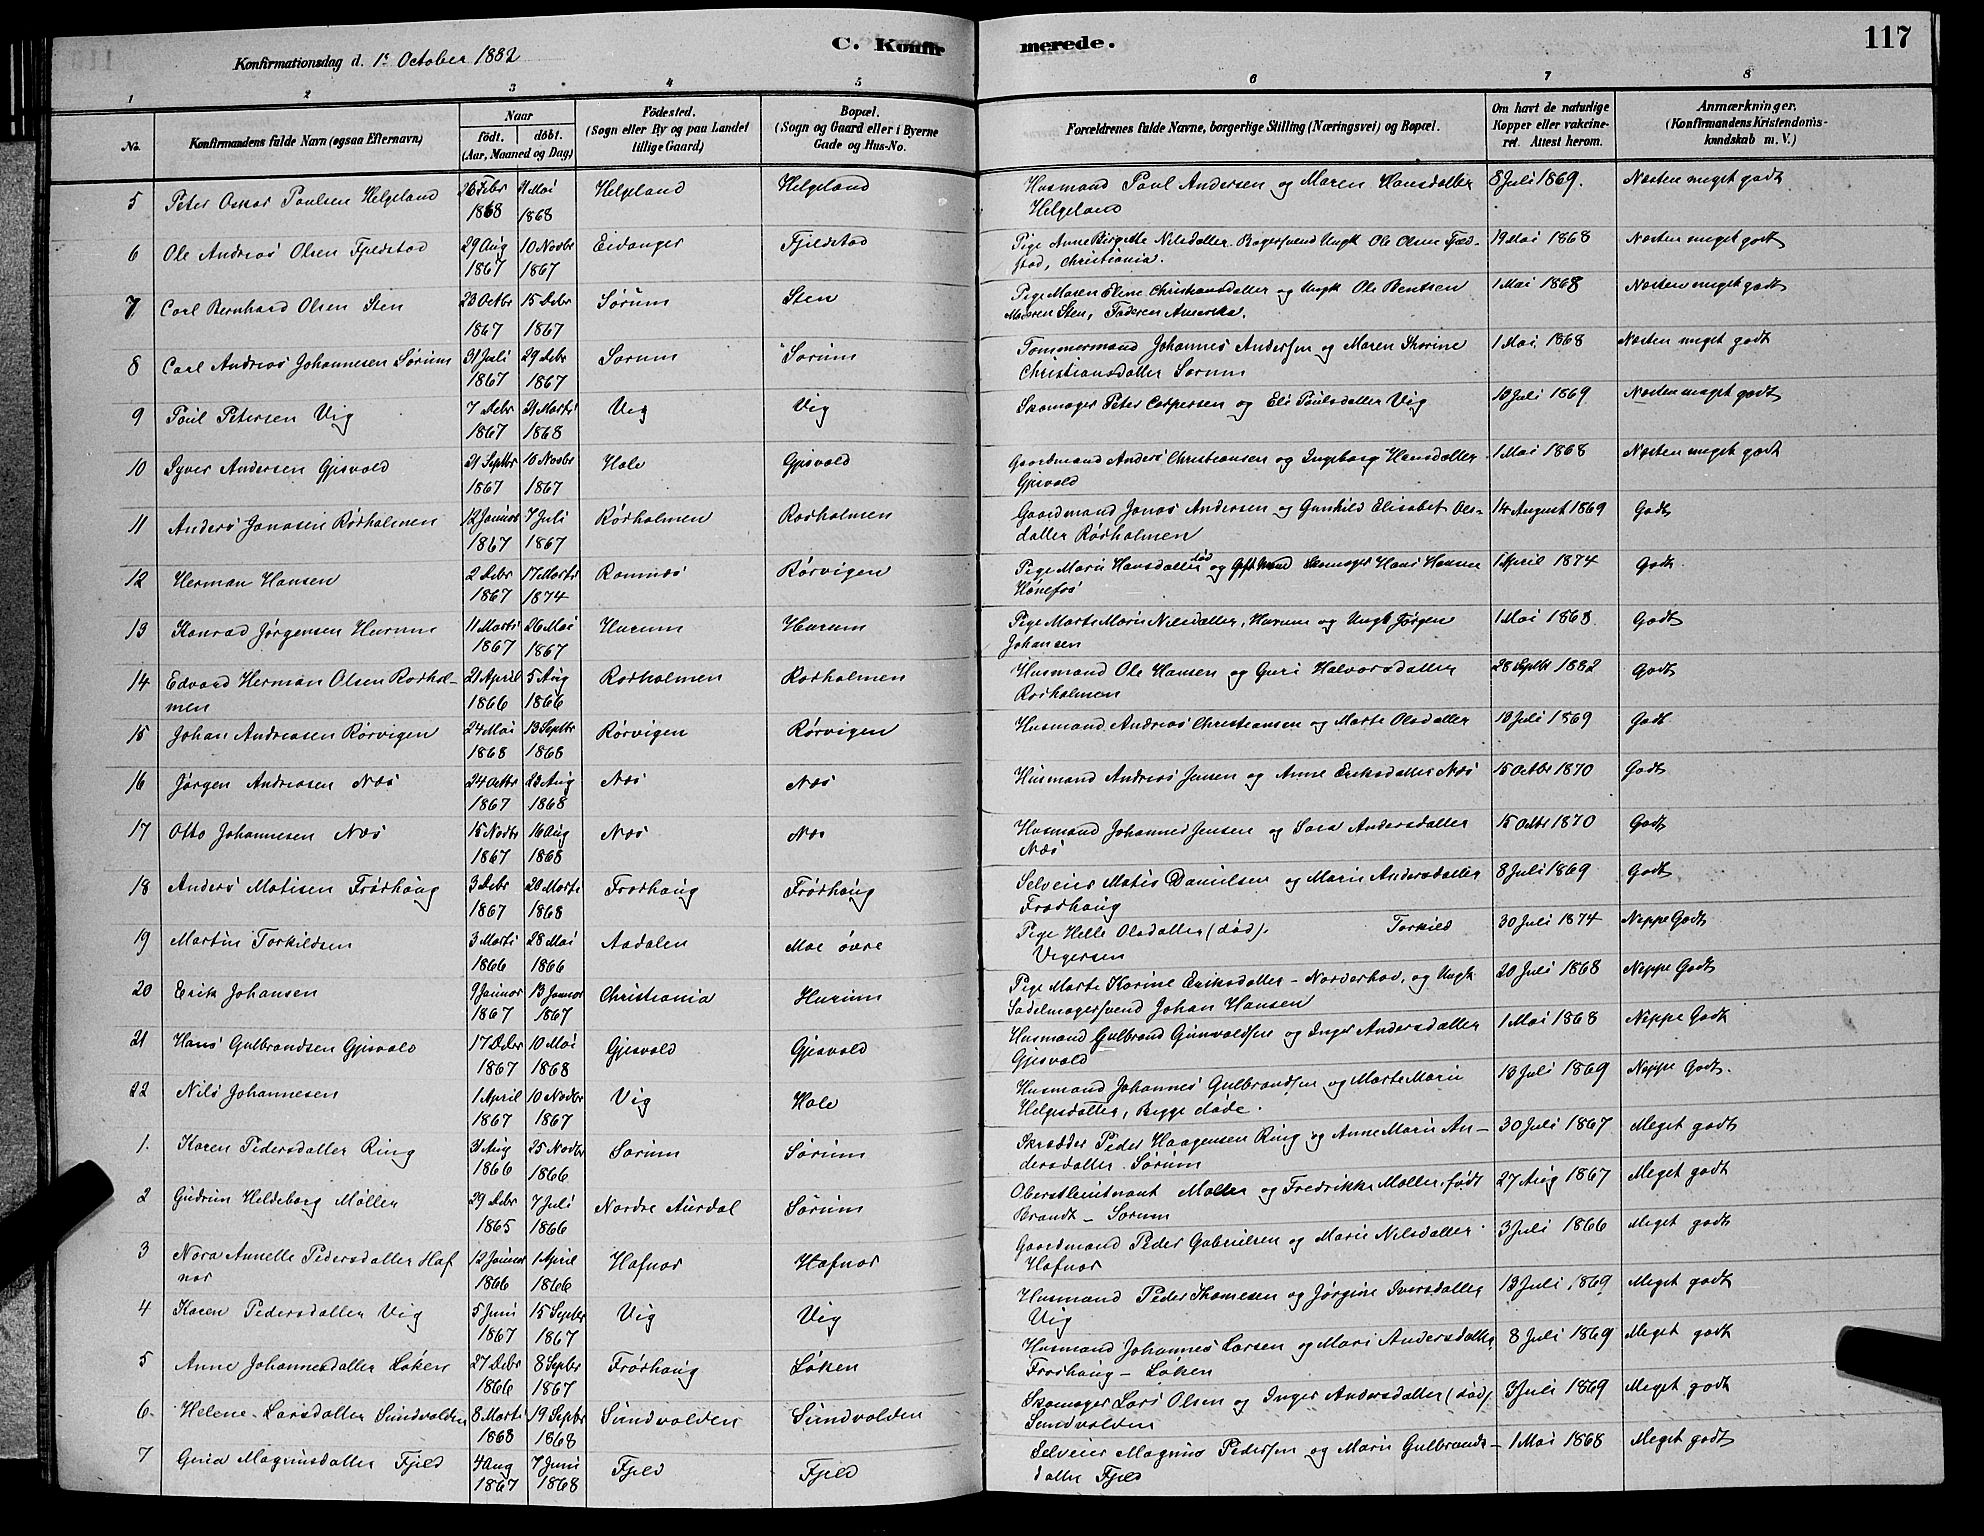 117
C. Konfirmerede.
Konfirmationsdag d. 1s October 1882
1 2 3 4 5 6 7 8
No. Konfirmandens fulde Navn (ogsaa Efternavn) Naar födt. döbt. (Aar, Maaned og Dag) Födested. (Sogn eller By og paa Landet tillige Gaard) Bopæl. (Sogn og Gaard eller i Byerne Gade og Hus-No. Forældrenes fulde Navne, borgerlige Stilling (Næringsvei) og Bopæl. Om havt de naturlige Kopper eller vakcineret. Attest herom. Anmærkninger, (Konfirmandens Kristendomskundskab m. V.)
5 Peter Oskar Paulsen Helgeland 26 Febr 1868 21 Mai 1868 Helgeland Helgeland Husmand Paul Andersen og Maren Hansdatter Helgeland 8 Juli 1869. Næsten meget godt
6 Ole Andreas Olsen Fjeldstad 29 Aug 1867 10 Novbr 1867 Eidanger Fjeldstad Pige Anne Birgitte Nilsdatter Bagersvend Ungk Ole Olsen Fjeldstad, Christiania. 19 Mai 1868 Næsten meget godt
7 Carl Bernhard Olsen Sten 23 Octbr 1867 15 Debr 1867 Sørum Sten Pige Maren Eline Christiansdatter og Ungk Ole Bentsen Moderen Sten, Faderen Amerika. 1 Mai 1868 Næsten meget godt
8 Carl Andreas Johannesen Sørum 31 Juli 1867 29 Debr 1867 Sørum Sørum Tømmermand Johannes Andersen og Maren Thorine Christiansdatter Sørum 1 Mai 1868 Næsten meget godt
9 Paul Petersen Vig 7 Debr 1867 21 Marts 1868 Vig Vig Skomager Peter Caspersen og Eli Paulsdatter Vig 13 Juli 1869 Næsten meget godt
10 Syver Andersen Gjesvold 21 Septbr 1867 10 Novbr 1867 Hole Gjesvold Gaardmand Anders Christiansen og Ingeborg Hansdatter Gjesvold 1 Mai 1868 Næsten meget godt
11 Anders Jonasen Rørholmen 12 Januar 1867 7 Juli 1867 Rørholmen Rørholmen Gaardmand Jonas Andersen og Gunhild Elisabet Olsdatter Rørholmen 14 August 1869 Godt
12 Herman Hansen 2 Debr 1867 17 Marts 1874 Romnæs Rørvigen Pige Marie Hansdatter død og Gift Mand Skomager Hans Hansen Hønefos 1 April 1874 Godt
13 Konrad Jørgensen Hurum 11 Marts 1867 26 Mai 1867 Hurum Hurum Pige Marte Marie Nilsdatter, Hurum og Ungk Jørgen Johansen 1 Mai 1868 Godt
14 Edvard Herman Olsen Rørholmen 21 April 1866 5 Aug 1866 Rørholmen Rørholmen Husmand Ole Hansen og Guri Halvorsdatter Rørholmen 28 Septbr 1882 Godt
15 Johan Andreasen Rørvigen 24 Mai 1868 13 Septbr 1868 Rørvigen Rørvigen Husmand Andreas Christiansen og Marte Olsdatter 13 Juli 1869 Godt
16 Jørgen Andreasen Næs 24 Octbr 1867 23 Aug 1868 Næs Næs Husmand Andreas Jensen og Anne Eriksdatter Næs 15 Octbr 1870 Godt
17 Otto Johannesen Næs 15 Novbr 1867 16 Aug 1868 Næs Næs Husmand Johannes Jensen og Sara Andersdatter Næs 15 Octbr 1870 Godt
18 Anders Matisen Frørhaug 3 Debr 1867 20 Marts 1868 Frørhaug Frørhaug Selveier Matis Danielsen og Marie Andersdatter Frørhaug 8 Juli 1869 Godt
19 Martin Torkildsen 3 Marts 1866 28 Mai 1866 Aadalen Moe øvre Pige Helle Olsdatter (død). Torkild Vegersen 30 Juli 1874 Neppe Godt
20 Erik Johansen 9 Januar 1867 13 Januar 1867 Christiania Hurum Pige Marte Karine Eriksdatter - Norderhov, og Ungk Sadelmagersvend Johan Hansen 20 Juli 1868 Neppe Godt
21 Hans Gulbrandsen Gjesvold 17 Debr 1867 10 Mai 1868 Gjesvold Gjesvold Husmand Gulbrand Gunvaldsen og Inger Andersdatter Gjesvold 1 Mai 1868 Neppe Godt
22 Nils Johannesen 1 April 1867 10 Novbr 1867 Vig Hole Husmand Johannes Gulbrandsen og Marte Marie Helgesdatter, Begge døde. 13 Juli 1869 Neppe Godt.
1. Karen Pedersdatter Ring 31 Aug 1866 25 Novbr 1866 Sørum Sørum Skrædder Peder Haagensen Ring og Anne Marie Andersdatter Sørum 30 Juli 1867 Meget godt
2 Gudrun Heldeborg Møller 29 Debr 1865 7 Juli 1866 Nordre Aurdal Sørum Oberstleutnant Møller og Fredrikke Møller, født Brandt - Sørum 27 Aug 1867 Meget godt
3 Nora Annette Pedersdatter Hafnor 12 Januar 1866 1 April 1866 Hafnor Hafnor Gaardmand Peder Gabrielsen og Marie Nilsdatter Hafnor 3 Juli 1866 Meget godt
4 Karen Pedersdatter Vig 5 Juni 1867 15 Septbr 1867 Vig Vig Husmand Peder Thomesen og Jørgine Iversdatter Vig 13 Juli 1869 Meget godt
5 Anne Johannesdatter Løken 27 Debr 1866 8 Septbr 1867 Frørhaug Løken Husmand Johannes Larsen og Mari Andersdatter, Frørhaug - Løken 8 Juli 1869 Meget godt
6. Helene Larsdatter Sundvolden 8 Marts 1868 19 Septbr 1868 Sundvolden Sundvolden Skomager Lars Olsen og Inger Andersdatter (død) Sundvolden 3 Juli 1869 Meget godt
7 Gina Magnusdatter Fjeld 4 Aug 1867 7 Juni 1868 Fjeld Fjeld Selveier Magnus Pedersen og Marie Gulbrandsdatter Fjeld 1 Mai 1868 Meget godt